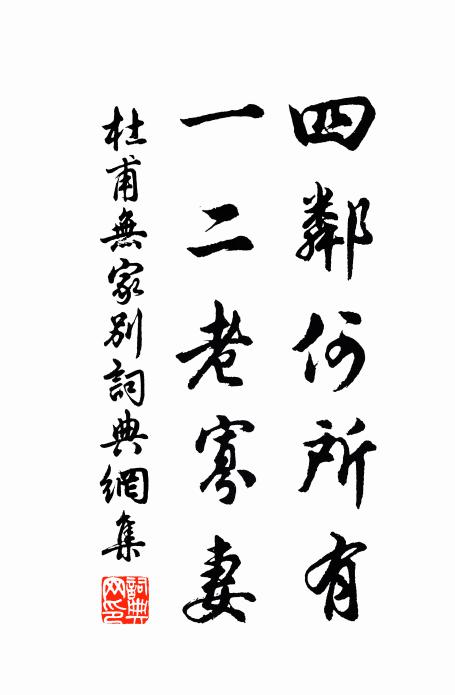 四鄰何所有
一二老寡妻
杜甫無家別詞典網集
詞典
网印